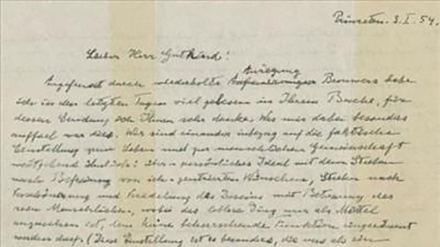 Princeton. 3. I. 54.
Lieber Herr Gutkind!
Anregung
Angefeuert durch wiederholte Brouwers habe
ich in den letzten Tagen viel gelesen in Ihrem Buche, für
dessen Sendung ich Ihnen sehr danke. Was mir dabei besonders
auffiel war dies. Wir sind einander inbezug auf die faktische
Einstellung zum Leben und zur menschlichen Gemeinschaft
weitgehend ähnlich: über-persönliches Ideal mit dem Streben
nach Befreiung von ich-zentrierten Wünschen, Streben nach
Verschönerung und Veredelung des Daseins mit Betonung des
rein Menschlichen, wobei das leblose Ding nur als Mittel
anzusehen ist, dem keine beherrschende Funktion eingeräumt
werden darf. (Diese Einstellung ist es besonders, die uns als ein